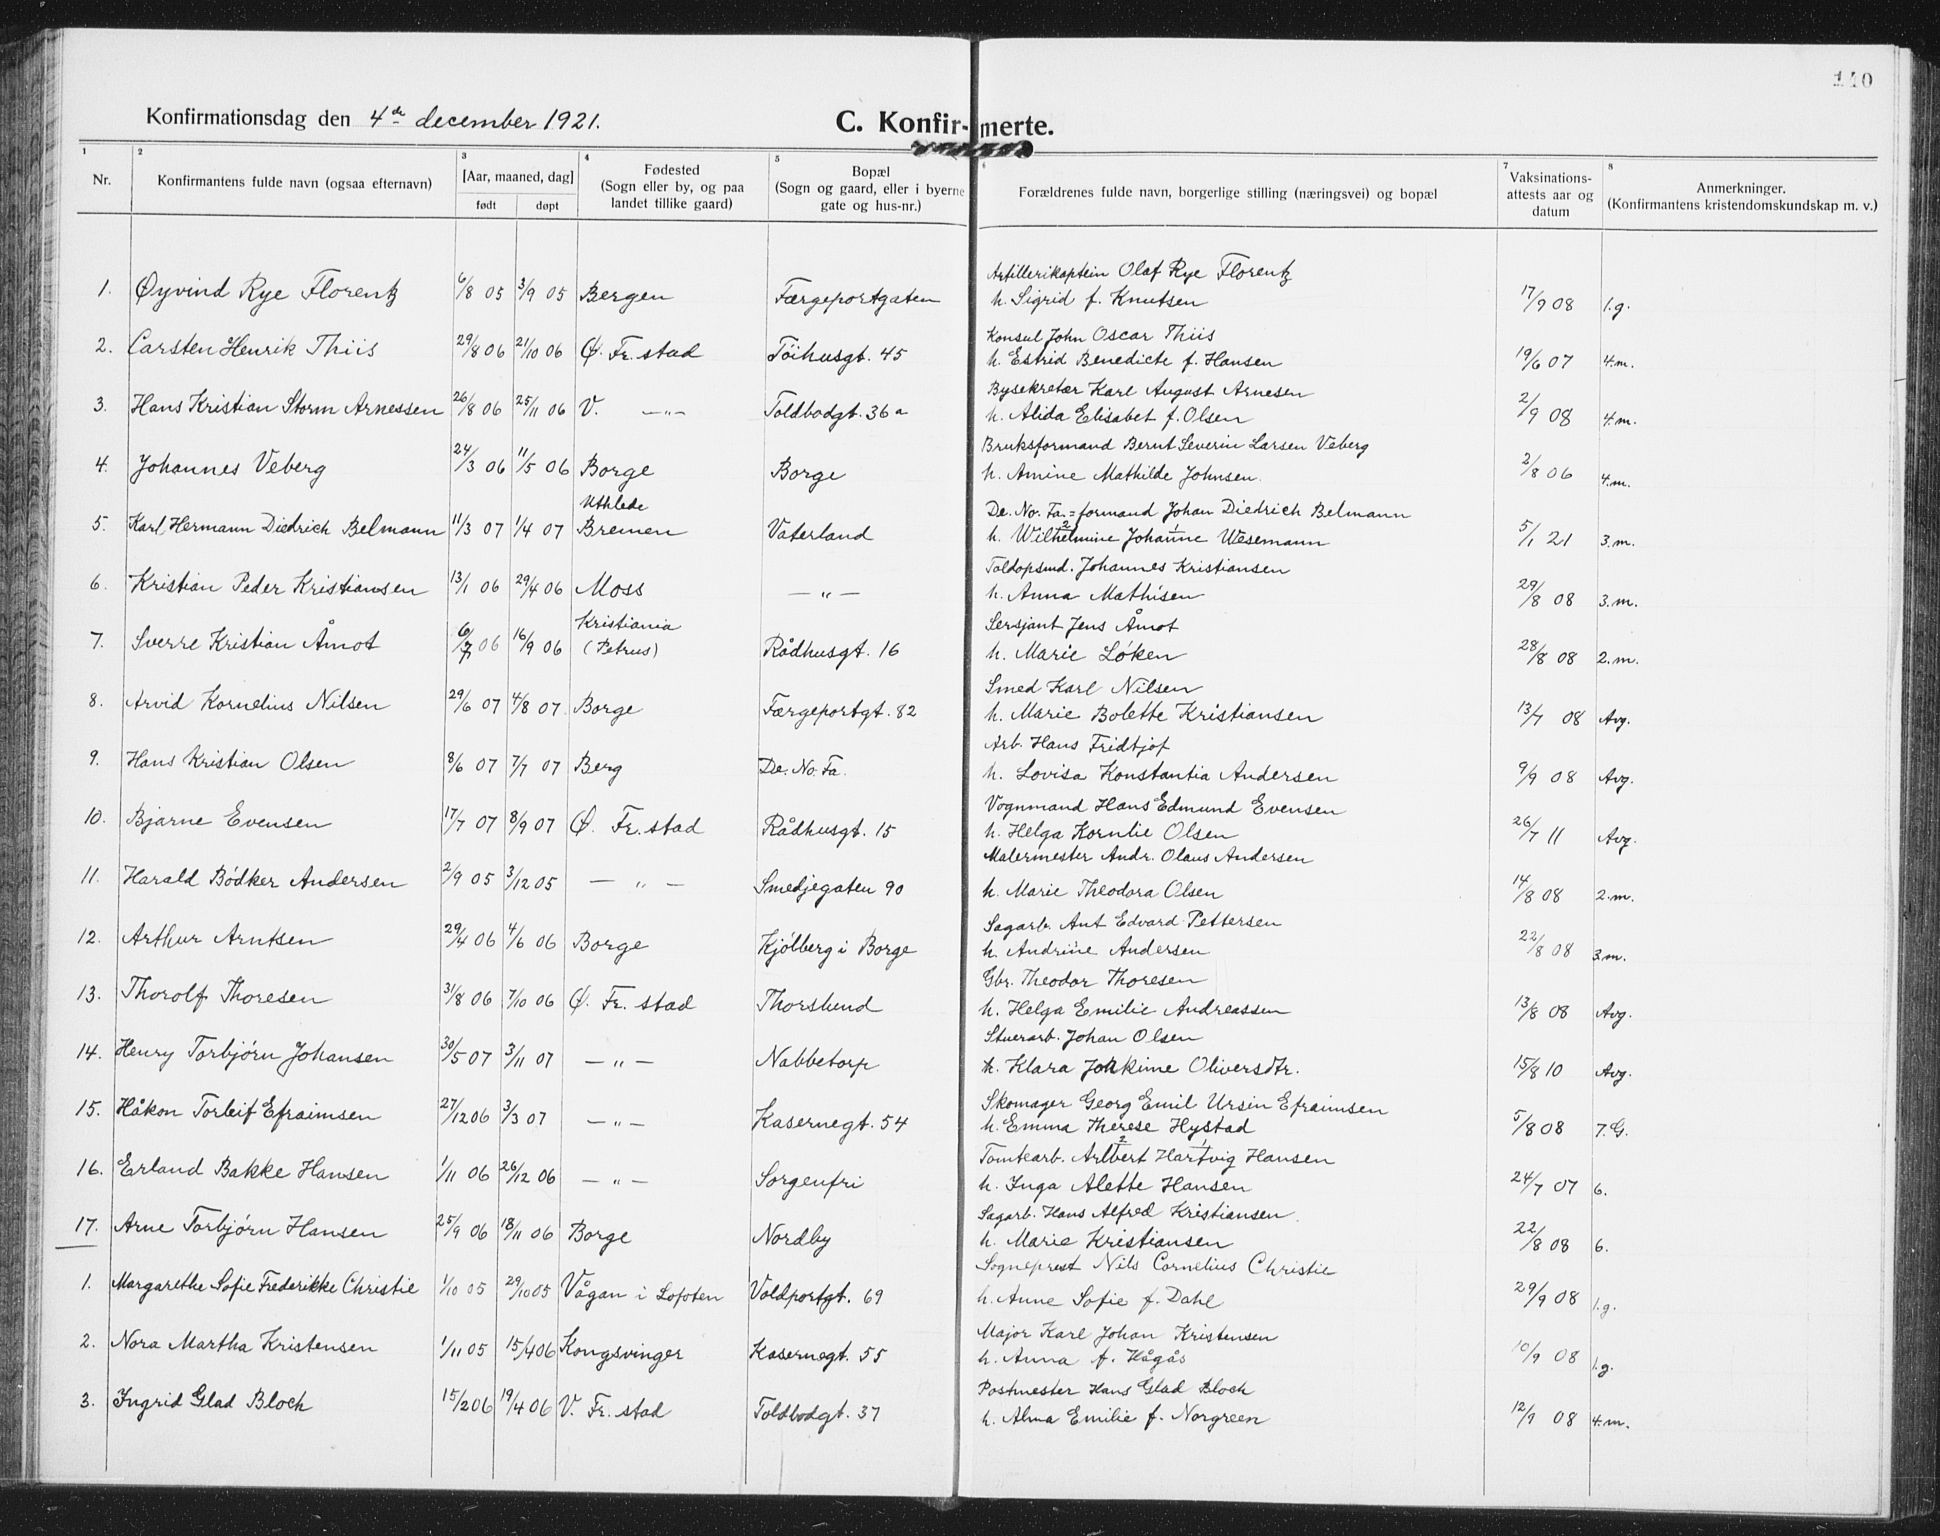 140
Konfirmationsdag den 4de december 1921.
C. Konfirmerte.
1 2 3 4 5 6 7 8
Nr.
Konfirmantens fulde navn (ogsaa efternavn)
[Aar, maaned, dag]
født døpt
Fødested
(Sogn eller by, og paa
landet tillike gaard)
Bopæl
(Sogn og gaard, eller i byerne
gate og hus-nr.)
Forældrenes fulde navn, borgerlige stilling (næringsvei) og bopæl
Vaksinations-
attests aar og
datum
Anmerkninger.
(Konfirmantens kristendomskundskap m. v.)
Artillerikaptein Olaf Rye Florentz
1. Øyvind Rye Florentz 6/8 05 3/9 05 Bergen Færgeportgaten h. Sigrid f. Knutsen 17/9 08 1.g.
Konsul John Oscar Thiis
2. Carsten Henrik Thiis 29/8 06 21/10 06 Ø. Fr.stad Töihusgt. 45 h. Estrid Benedicte f. Hansen 19/6 07 4.m.
Bysekretær Karl August Arnesen
3. Hans Kristian Storm Arnessen 26/8 06 25/11 06 V. —„— Toldbodgt. 36a h. Alida Elisabet f. Olsen 2/9 08 4.m.
Bruksformand Bernt Severin Larsen Veberg
4. Johannes Veberg 24/3 06 11/5 06 Borge Borge h. Amine Mathilde Johnsen. 2/8 06 4.m.
Uthlede De. No. Fa.=formand Johan Diedrich Belmann
5. Karl Hermann Diedrich Belmann 11/3 07 1/4 07 Bremen Vaterland h. Wilhelmine 2 Johanne 1 Wesemann 5/1 21 3.m.
Toldopsmd. Johannes Kristiansen
6. Kristian Peder Kristiansen 13/1 06 29/4 06 Moss —„— h. Anna Mathisen 29/8 08 3.m.
Kristiania Sersjant Jens Åmot
7. Sverre Kristian Åmot 6/7 06 16/9 06 (Petrus) Rådhusgt. 16 h. Marie Løken 28/8 08 2.m.
Smed Karl Nilsen
8. Arvid Kornelius Nilsen 29/6 07 4/8 07 Borge Færgeportgt. 82 h. Marie Bolette Kristiansen 13/7 08 Avg.
Arb. Hans Fridtjof
9. Hans Kristian Olsen 8/6 07 7/7 07 Berg De. No. Fa. h. Lovisa Konstantia Andersen 9/9 08 Avg.
Vognmand Hans Edmund Evensen
10. Bjarne Evensen 17/7 07 8/9 07 Ø. Fr. stad Rådhusgt. 15 h. Helga Kornlie Olsen 26/7 11 Avg.
Malermester Andr. Olaus Andersen
11. Harald Bødker Andersen 2/9 05 3/12 05 —„— Smedjegaten 90 h. Marie Theodora Olsen 14/8 08 2.m.
Sagarb. Ant Edvard Pettersen
12. Arthur Arntsen 29/4 06 4/6 06 Borge Kjölberg i Borge h. Andrine Andersen 22/8 08 3.m.
Gbr. Theodor Thoresen
13. Thorolf Thoresen 31/8 06 7/10 06 Ø. Fr. stad Thorslund h. Helga Emilie Andreassen 13/8 08 Avg.
Stuerarb. Johan Olsen
14. Henry Torbjørn Johansen 30/5 07 3/11 07 —„— Nabbetorp h. Klara Jokkime Oliversdtr. 15/8 10 Avg.
Skomager Georg Emil Ursin Efraimsen
15. Håkon Torleif Efraimsen 27/12 06 3/3 07 —„— Kasernegt. 54 h. Emma Therese Hystad 5/8 08 7.G.
Tomtearb. Arlbert 2 Hartvig 1 Hansen
16. Erland Bakke Hansen 1/11 06 26/12 06 —„— Sorgenfri h. Inga Alette Hansen 24/7 07 6.
Sagarb. Hans Alfred Kristiansen.
17. Arne Torbjørn Hansen 25/9 06 18/11 06 Borge Nordby h. Marie Kristiansen 22/8 08 6.
Sogneprest Nils Cornelius Christie
1. Margarethe Sofie Frederikke Christie 1/10 05 29/10 05 Vågan i Lofoten Voldportgt. 69 h. Anne Sofie f. Dahl 29/9 08 1.g.
Major Karl Johan Kristensen
2. Nora Martha Kristensen 1/11 05 15/4 06 Kongsvinger Kasernegt. 55 h. Anna f. Hågås 10/9 08 1.g.
Postmester Hans Glad Bloch
3. Ingrid Glad Bloch 15/2 06 19/4 06 V. Fr. stad Toldbodgt. 37 h. Alma Emilie f. Norgreen 12/9 08 4.m.